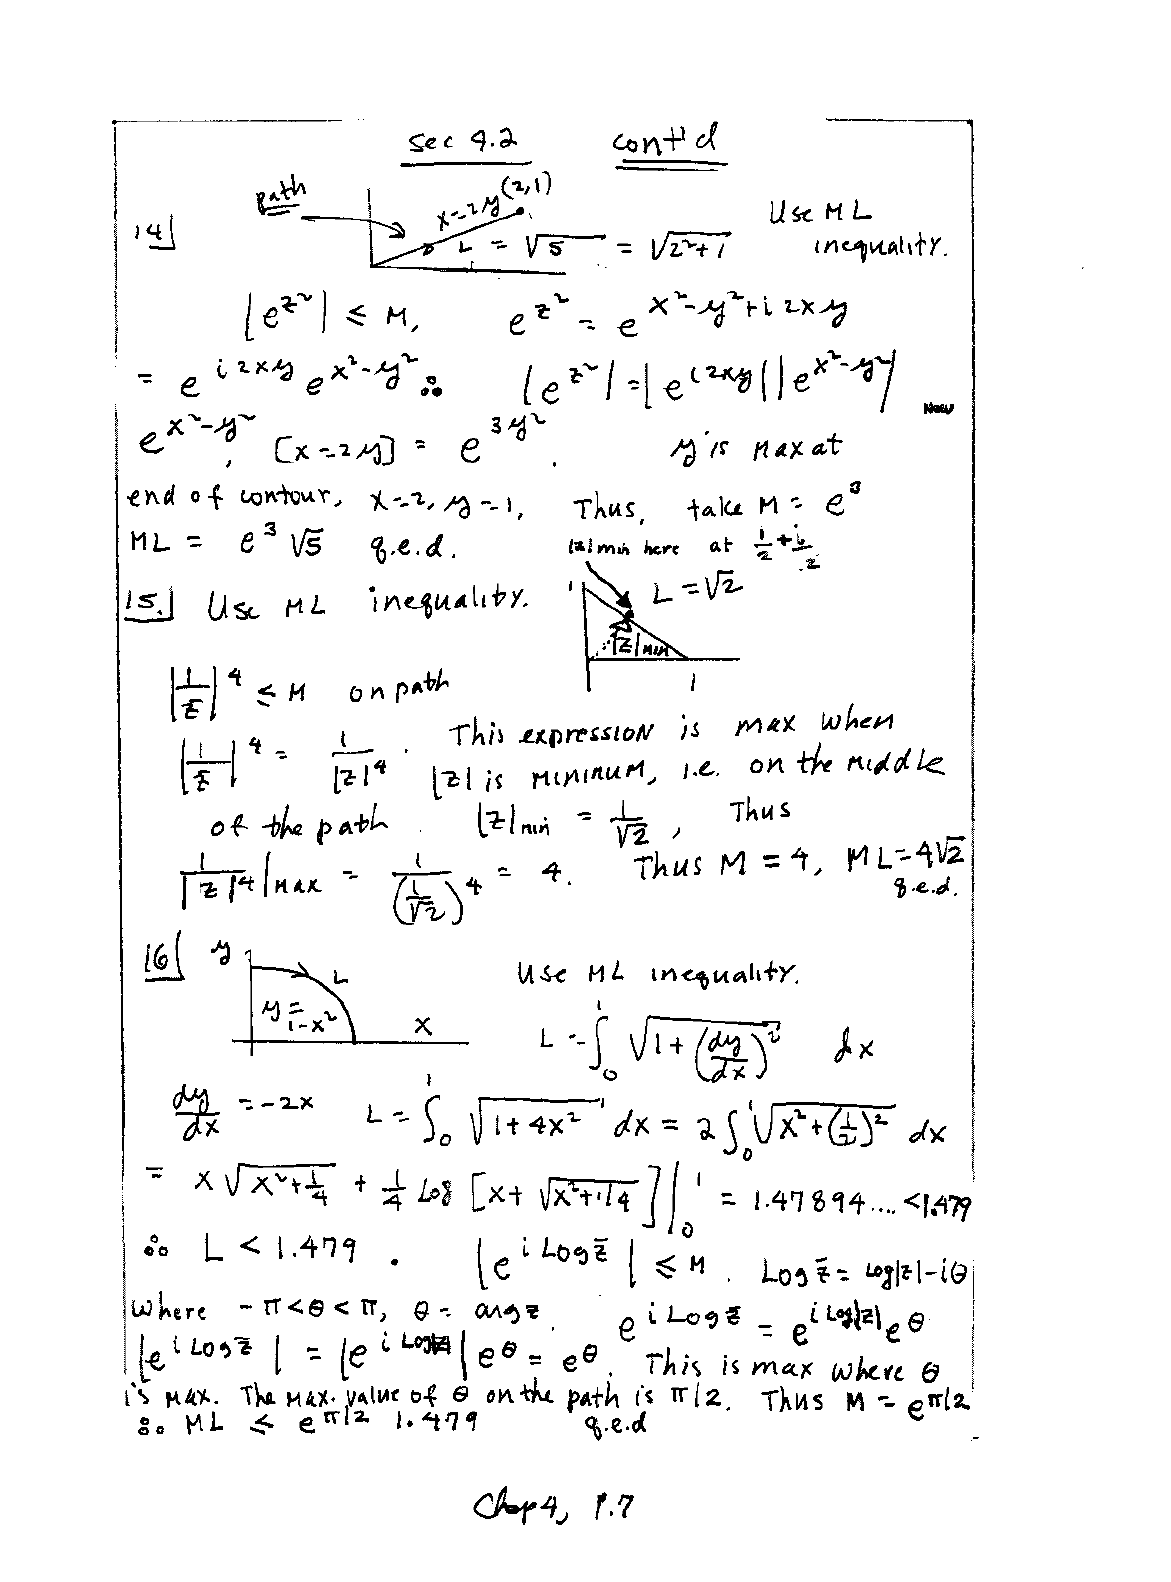 sec 4.2 cont'd
path x=2y (2,1) Use ML
14] L = √5 = √2²+1 inequality.
|e^z²| ≤ M, e^z² = e^x²-y²+i2xy
= e^i2xy e^x²-y² ∴ |e^z²| = |e^i2xy||e^x²-y²| Now
e^x²-y², [x=2y] = e^3y². y is max at
end of contour, x=2, y=1, Thus, take M = e³
ML = e³ √5 q.e.d. |z| min here at 1/2 + i/2
15.] Use ML inequality. 1 L = √2
|z| min
|1/z|⁴ ≤ M on path 1
|1/z|⁴ = 1/|z|⁴. This expression is max when
|z| is minimum, i.e. on the middle
of the path. |z|min = 1/√2, Thus
1/|z|⁴|max = 1/(1/√2)⁴ = 4. Thus M = 4, ML=4√2
q.e.d.
16] y L Use ML inequality.
y = 1-x² x L = ∫₀¹ √1+(dy/dx)² dx
dy/dx = -2x L = ∫₀¹ √1+4x² dx = 2∫₀¹ √x²+(1/2)² dx
= x√x²+1/4 + 1/4 Log [x+ √x²+1/4]|₀¹ = 1.47894.... <1.479
∴ L < 1.479. |e^i Log z̄| ≤ M. Log z̄ = Log|z|-iθ
where -π<θ<π, θ = arg z. e^i Log z̄ = e^i Log|z| e^θ
|e^i Log z̄| = |e^i Log|z|| e^θ = e^θ. This is max where θ
is max. The max. value of θ on the path is π/2. Thus M = e^π/2
∴ ML ≤ e^π/2 1.479 q.e.d
Chap 4, P.7